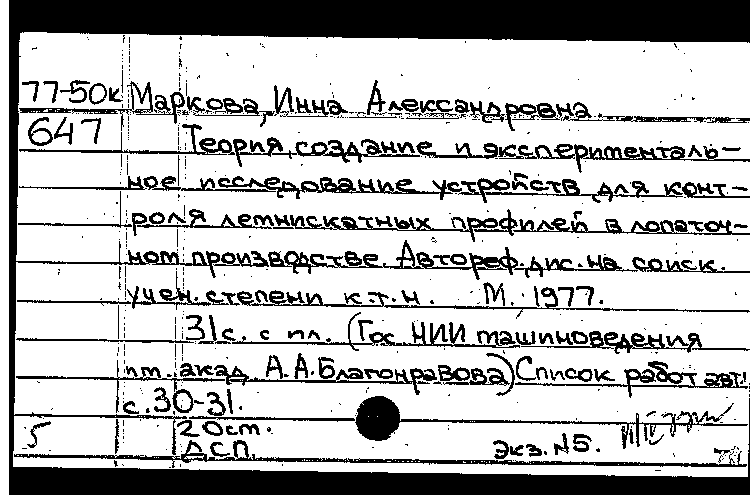 77-50к Маркова, Инна Александровна.
647 Теория, создание и эксперименталь-
ное исследование устройств для конт-
роля лемнискатных профилей в лопаточ-
ном производстве. Автореф. дис. на соиск.
учен. степени к.т.н. М. 1977.
31с. с ил. (Гос. НИИ машиноведения
им. акад. А.А. Благонравова) Список работ авт.:
с. 30-31.
5 20 ст.
ДСП. Экз. N5.